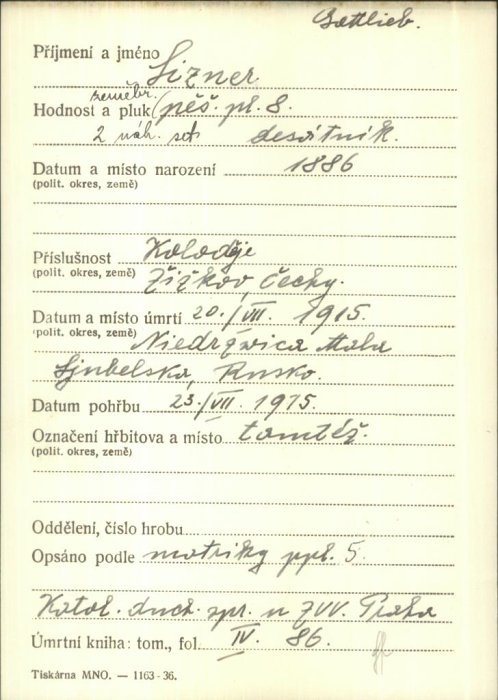 Gottlieb.
Příjmení a jméno Lizner
zeměbr.
Hodnost a pluk (pěš. pl. 8.
2 náh. set desátník.
Datum a místo narození 1886
(polit. okres, země)
Příslušnost Koloděje
(polit. okres, země) Žižkov, Čechy.
Datum a místo úmrtí 20./VII. 1915.
(polit. okres, země) Niedrzwica Mala
Ljubelska, Rusko.
Datum pohřbu 23./VII. 1915.
Označení hřbitova a místo tamtéž.
(polit. okres, země)
Oddělení, číslo hrobu
Opsáno podle matriky ppl. 5.
Katol. duch. spr. u ZVV. Praha
Úmrtní kniha: tom., fol. IV. 86.
Tiskárna MNO. — 1163-36.